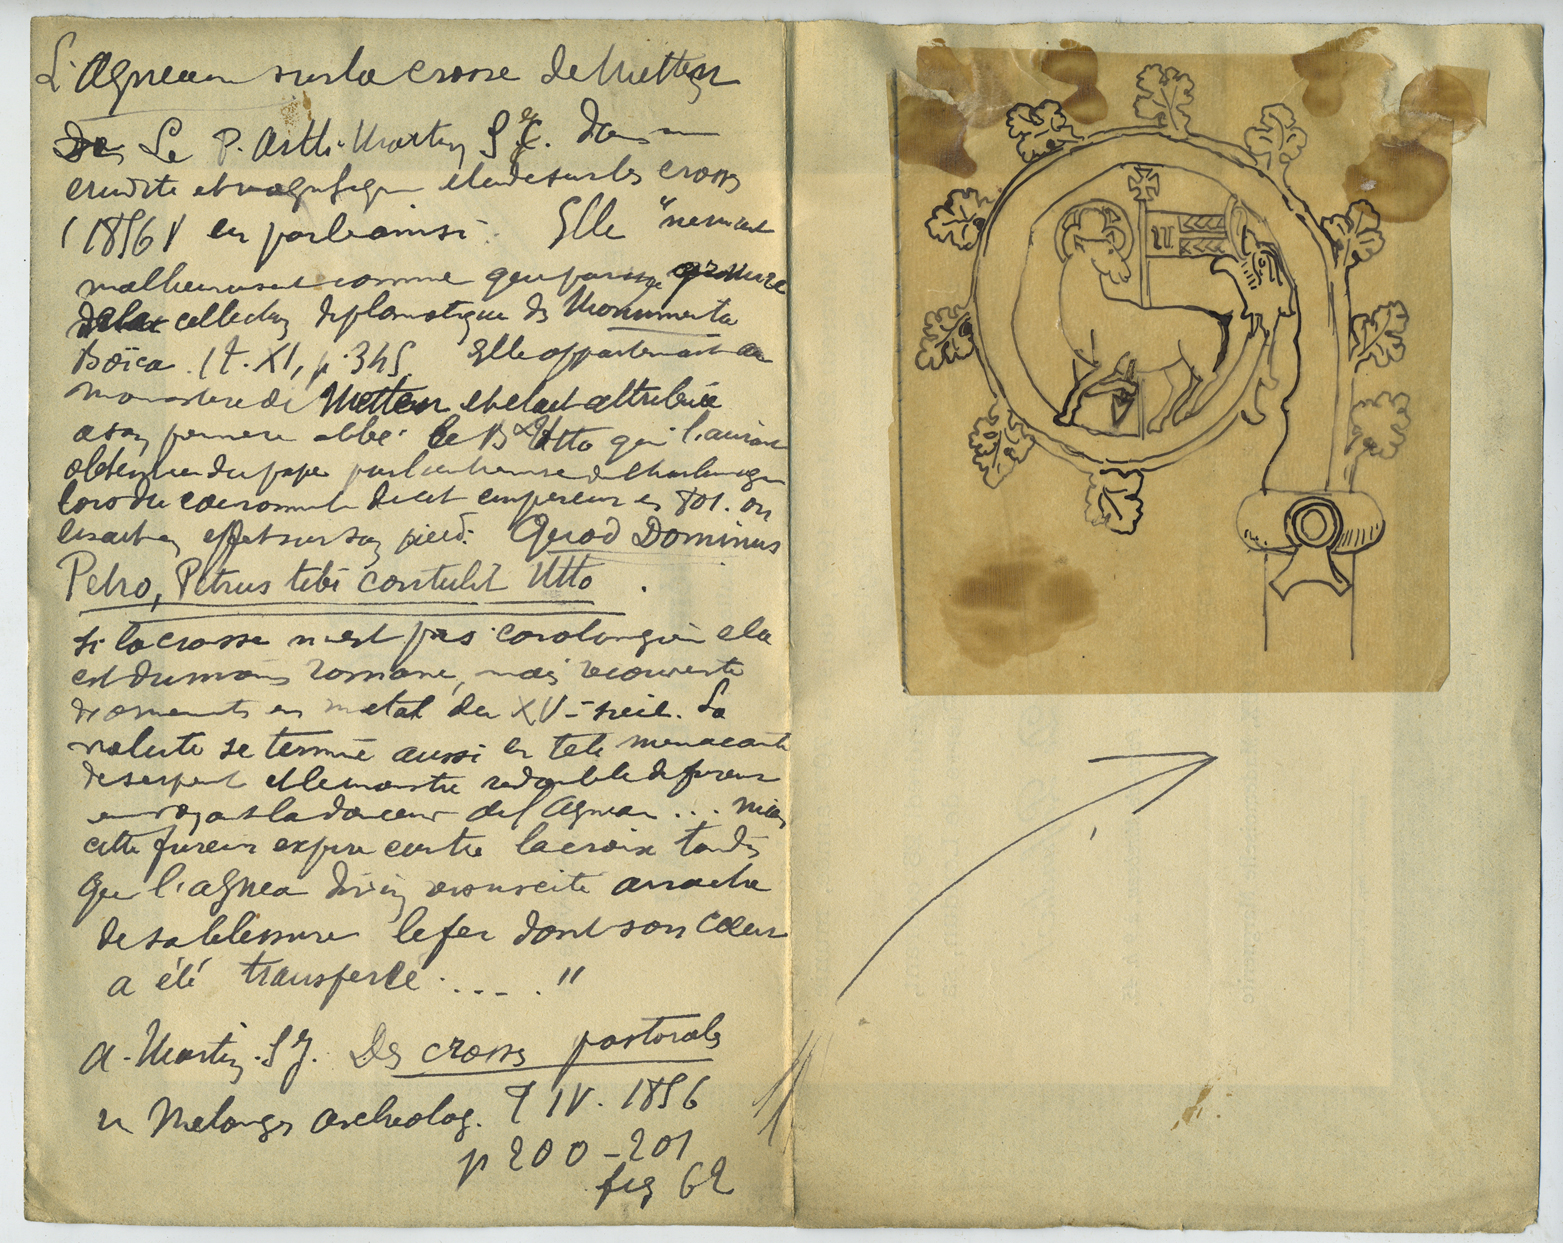 L'Agneau sur la crosse de Metten
Le P. Arth. Martin S. J. dans
erudite et magnifique etude sur les crosses
(1856) en parle ainsi : Elle "ne m'est
malheureusement comme que par
collection diplomatique des Monumenta
Boïca. (t. XI, p. 345. Elle appartenait au
monastere de Metten et etait attribuée
a son premier abbé le Bx Utto qui l'aurait
obtenue du pape par l'entremise de Charlemagne
lors du couronnement de cet empereur en 801. on
lisait en effet sur son pied : Quod Dominus
Petro, Petrus tibi contulit Utto .
si la crosse n'est pas carolingien ela
est du moins romane, mais recouverte
d'ornements en metal du XV-siecl. La
volute se termine aussi en tete menacante
de serpent et le monstre redouble de fureur
en voyant la douceur de l'Agneau ... mais
cette fureur expire contre la croix tandis
que l'agneau divin ressuscite arrache
de sa blessure le fer dont son coeur
a été transpercé ..... "
A. Martin. S J. Des crosses pastorales
in Melanges Archeolog. T IV. 1856
p 200-201
fig 62